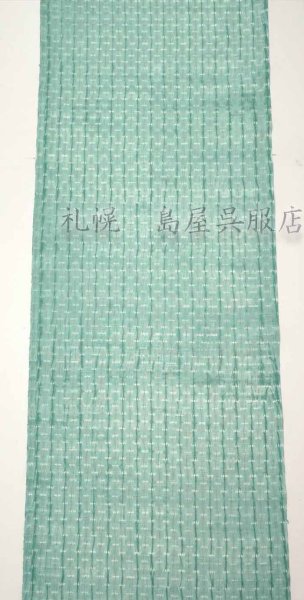 札幌 島屋呉服店